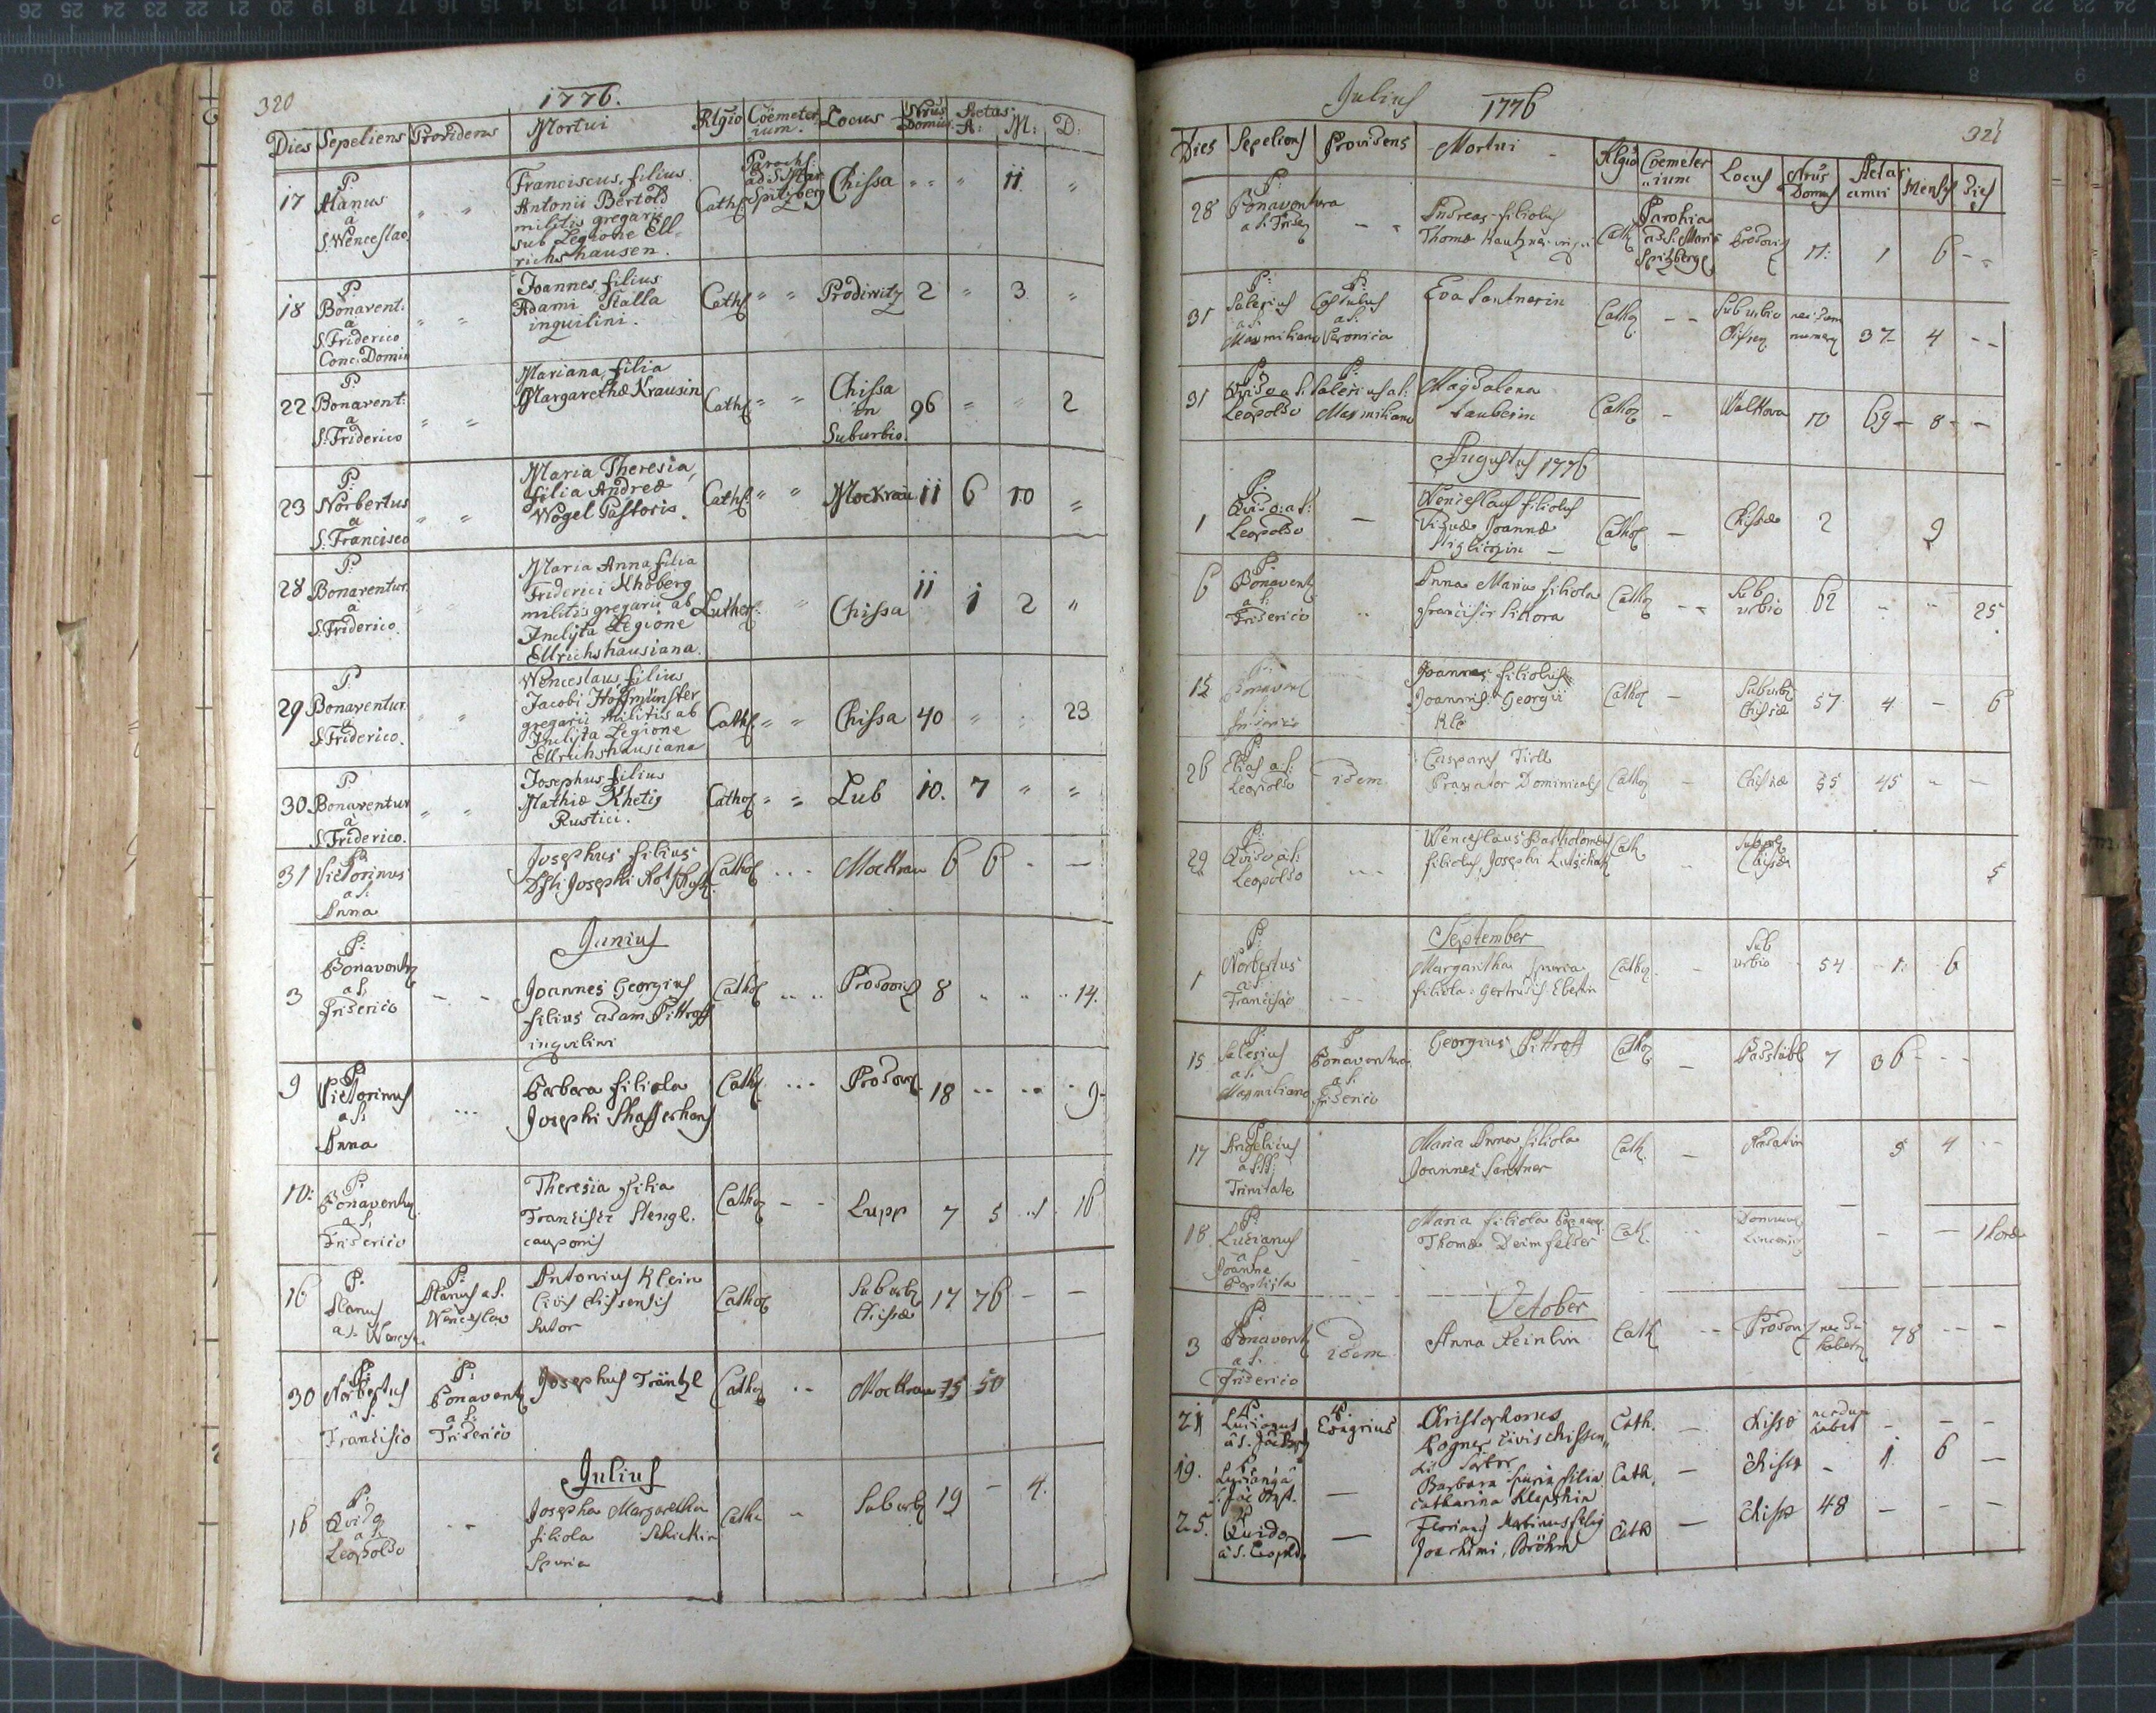 320
1776.
Dies Sepeliens Providens Mortui Rlgio Coemeterium. Locus Nrus Domus Aetas A: M: D:
17 P. Alanus a S. Wenceslao " " Franciscus, filius
Antonii Bertold
militis gregarii
sub Legione Ell-
richshausen. Cath Paroch: ad S. Mar Spitzberg Chissa " " " 11 "
18 P. Bonavent: a S. Friderico Conc. Domin " " Joannes filius
Adami Stalla
inquilini. Cath " " Prodiwitz 2 " 3 "
22 P: Bonavent: a S. Friderico " " Mariana, filia
Margarethæ Krausin Cath " " Chissa in Suburbio. 96 " " 2
23 P: Norbertus a S. Francisco " " Maria Theresia,
filia Andreæ
Wogel Pastoris. Cath " " Mockrau 11 6 10 "
28 P: Bonaventur. a S. Friderico. " " Maria Anna filia
Friderici Khoberg
militis gregarii ab
Inclyta Legione
Ellrichshausiana. Luther. " Chissa 11 1 2 "
29 P. Bonaventur. a S. Friderico. " " Wenceslaus, filius
Jacobi Hoffmünster
gregarii militis ab
Inclyta Legione
Ellrichshausiana Cath " " Chissa 40 " " 23
30 P. Bonaventur a S. Friderico. " " Josephus filius
Mathiæ Khetig
Rustici. Cathol " " Lub 10. 7 " "
31 P. Victorinus a S: Anna Josephus filius
Josephi Cathol ... Mockrau 6 6 - -
Junius
3 P: Bonavent a S. Friderico - - Joannes Georgius
filius Adam Pittroff
inquilini Cathol .. .. Prodowitz 8 " " 14.
9 P. Victorinus a S: Anna ... Barbara filiola
Josephi Shafferhans Cath ... Prodow 18 -- -- 9-
10: P. Bonavent a S. Friderico Theresia filia
Francisci Stengl.
cauponis Cathol - - Lupp 7 5 1 16
16 P. Alanus a S. Wencesl P: Alanus a S. Wenceslao Antonius Klein
Civis Chissensis
Sutor Cathol Suburb Chissæ 17 76 - -
30 P: Norbertus a S. Francisco P: Bonavent a S: Friderico Josephus Träntzl Cathol .. Mockrau 15 50
Julius
16 P. Quido a S. Leopoldo - - Josepha Margaretha
filiola Schickin
Spuria Cathc " Suburb 19 - 4.
Julius 1776
321
Dies Sepeliens Providens Mortui - Rlgio Coemeterium Locus Nrus Domus Aetas anni Menses Dies
28 P: Bonaventura a S. Frider - - Andreas filiolus
Thomæ Cath Parohia ad S. Maria Spizberg Prodowitz 11: 1 6 - -
31 P: Salesius a S: Maxmiliano P: Castulus a S: Veronica Eva Santnerin Cathol - - Suburbio Chissen 37- 4 - -
31 P: Quido a S: Leopoldo P: Salesius a S: Maxmiliano Magdalena
Tauberin Cathol - Walkova 10 69 - 8 - -
Augustus 1776
1 P: Quido: a S: Leopoldo - Wenceslaus filiolus
Viduæ Joannæ
Stiglitzin - Cathol - Chissæ 2 9
6 P: Bonavent a S: Friderico .. Anna Maria filiola
Francisci Sikora Cathol - - Suburbio 62 " " 25
15 P: Bonavent Friderico Joannes filiolus
Joannis Georgii
Kle Cathol - Suburbio Chissæ 57 4 - 6
26 P. Elias a S: Leopoldo idem Casparus Tirll
Praxator Dominicalis Cathol - Chissæ 55 45 " -
29 P: Quido a S: Leopoldo ... Wenceslaus Bartholomæus
filiolus Josephi Cath .. Suburb Chissæ 5
September
1 P: Norbertus a S. Francisco ... Margaritha spuria
filiola Gertrudis Eberin Cathol - Suburbio 54 1: 6
15 P: Salesius a S. Maxmiliano P Bonaventura a S. Friderico Georgius Pittroff Cathol - 7 36 - - -
17 P. Angelicus a SS: Trinitate Maria Anna filiola
Joannes Santner Cath. - Radatin 5 4 - -
18. P. Lucianus a S. Joanne Baptista - Maria filiola
Thomæ Deimfelder Cath. .. - - 1 hora
October
3 P: Bonavent a S. Friderico idem Anna Reinlin Cath - - Prodow 78 - - -
21 P. Lucianus a S. Joe Bap P. Evagrius Christophorus
Rogner civis Chissen
sis Sartor Cath. - Chissæ necdum habet - - -
19. P. Lucian a S. Joe Bapt. - Barbara spuria filia
Catharina Klepshin Cath. - Chissæ - 1 6 -
25. P. Quido a S. Leopldo - Florianus Martinus
Joachimi Böhm Cath - Chissæ 48 - - -